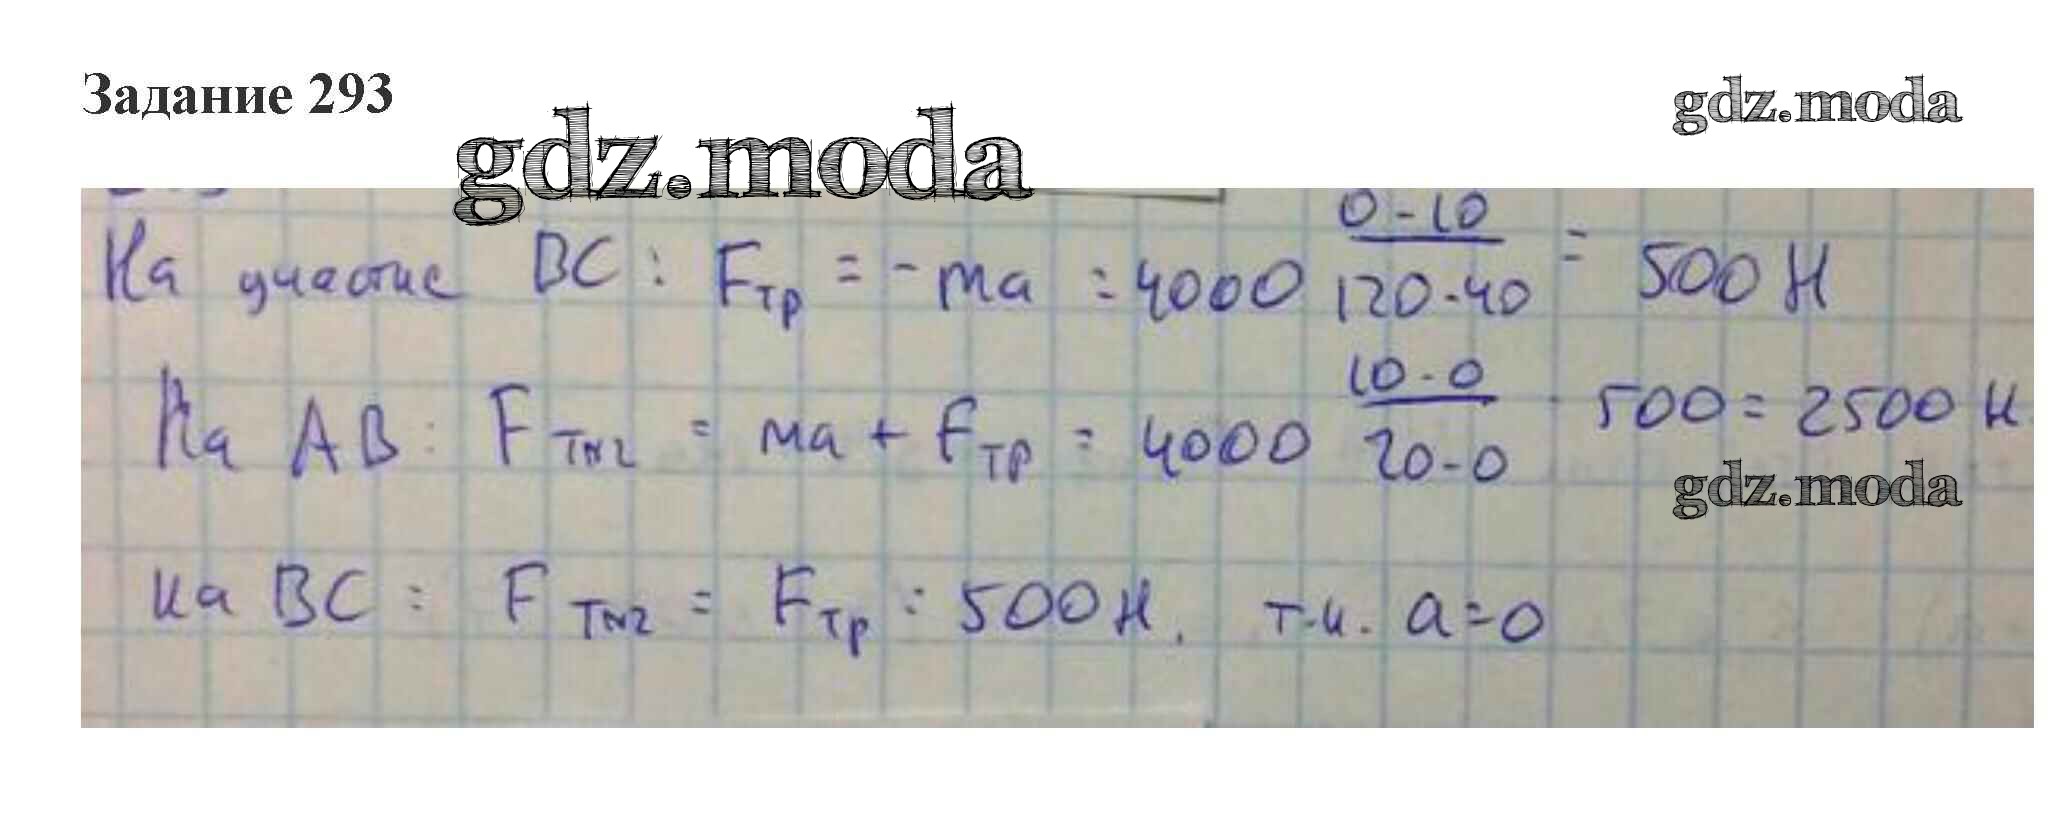 Задание 293
gdz.moda
gdz.moda
На участке BC: Fтр = - ma = 4000 (0-10)/(120-40) = 500 Н
На AB: Fтяг = ma + Fтр = 4000 (10-0)/(20-0) · 500 = 2500 Н
gdz.moda
на BC: Fтяг = Fтр = 500 Н. т.к. a=0